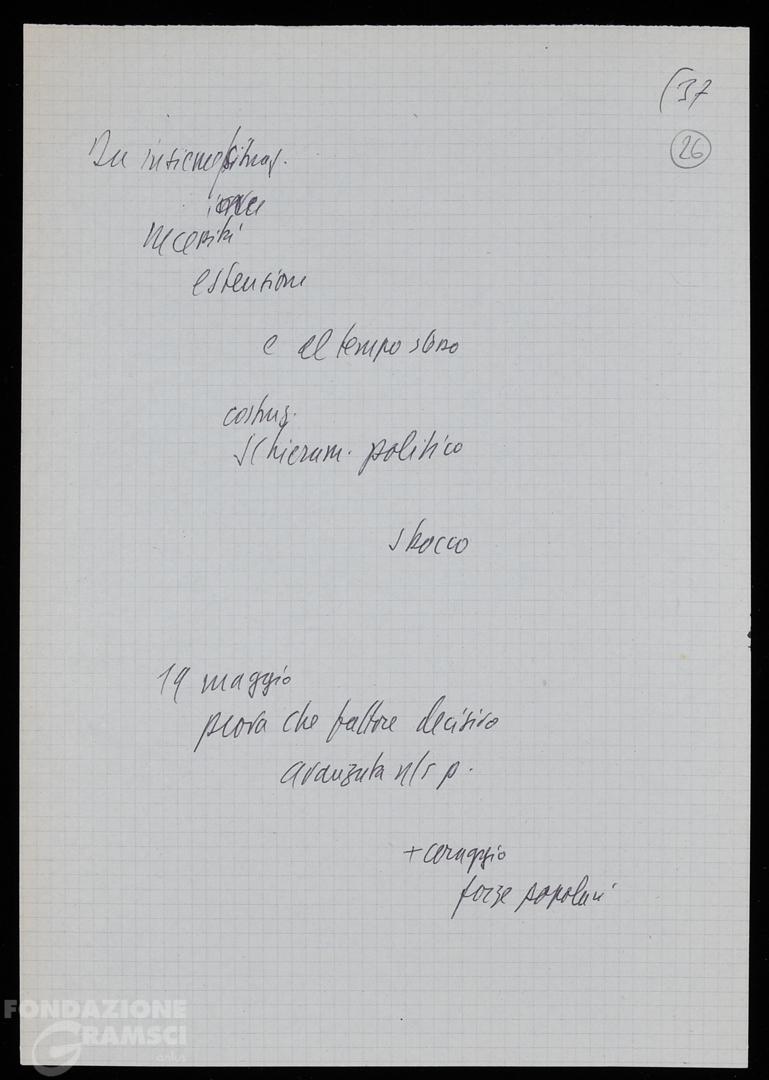 (37
26
insieme
necessità
estensione
e al tempo stesso
costruz.
schieram. politico
sbocco
19 maggio
prova che fattore decisivo
avanzata n/s p.
+ coraggio
forze popolari
FONDAZIONE
GRAMSCI
onlus